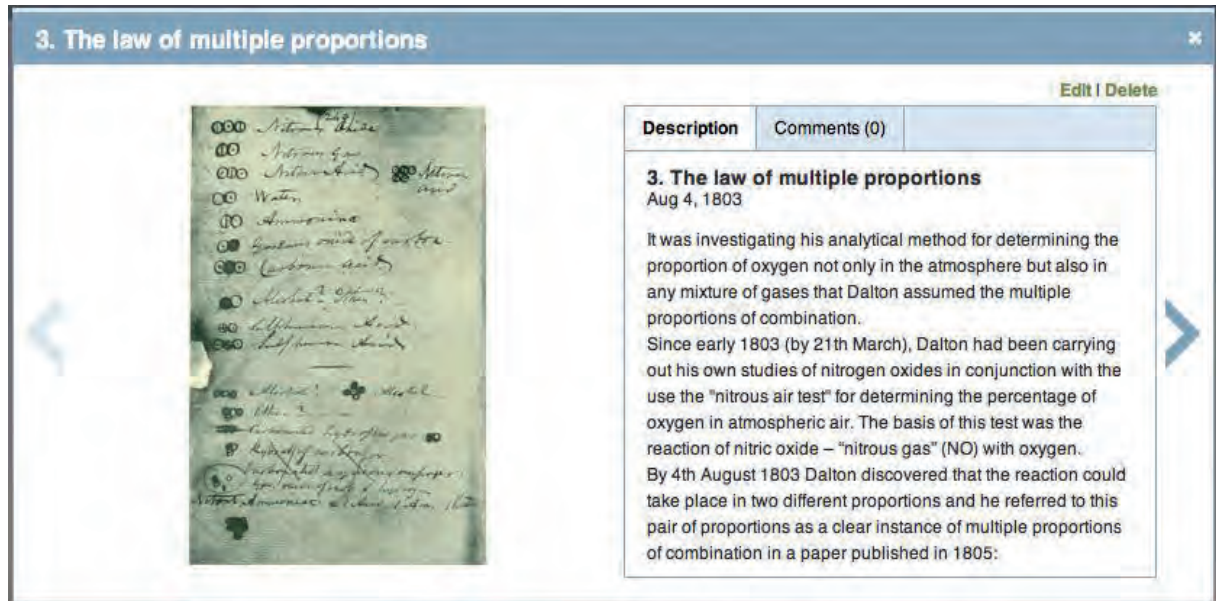 3. The law of multiple proportions
Edit | Delete
Nitrous Oxide
Nitrous Gas
Nitrous Acid Nitrous
acid
Water
Ammonia
Gaseous oxide of carbon
Carbonic acid
Alcohol?
Sulphureous Acid
Sulphuric Acid
Alcohol? Alcohol
Ether?
Carbonated hydrogen gas
Hydrat of carbon
Nitrat Ammoniac
Description
Comments (0)
3. The law of multiple proportions
Aug 4, 1803
It was investigating his analytical method for determining the
proportion of oxygen not only in the atmosphere but also in
any mixture of gases that Dalton assumed the multiple
proportions of combination.
Since early 1803 (by 21th March), Dalton had been carrying
out his own studies of nitrogen oxides in conjunction with the
use the "nitrous air test" for determining the percentage of
oxygen in atmospheric air. The basis of this test was the
reaction of nitric oxide – "nitrous gas" (NO) with oxygen.
By 4th August 1803 Dalton discovered that the reaction could
take place in two different proportions and he referred to this
pair of proportions as a clear instance of multiple proportions
of combination in a paper published in 1805: